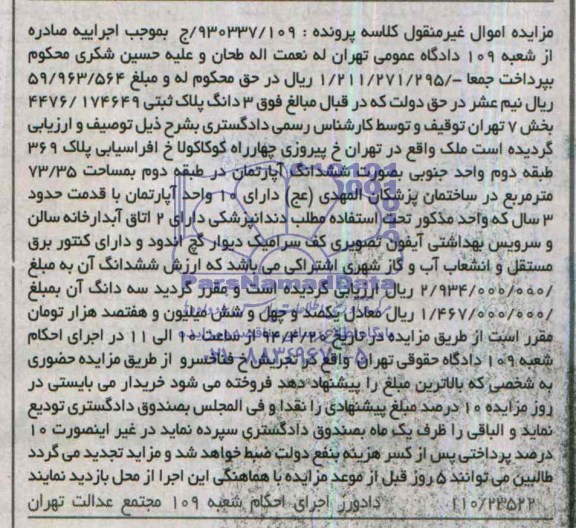 مزایده اموال غیرمنقول کلاسه پرونده : ۹۳۰۳۳۷/۱۰۹/ج بموجب اجراییه صادره
از شعبه ۱۰۹ دادگاه عمومی تهران له نعمت اله طحان و علیه حسین شکری محکوم
بپرداخت جمعا -/۱/۲۱۱/۲۷۱/۲۹۵ ریال در حق محکوم له و مبلغ ۵۹/۹۶۳/۵۶۴
ریال نیم عشر در حق دولت که در قبال مبالغ فوق ۳ دانگ پلاک ثبتی ۱۷۴۶۴۹/ ۴۴۷۶
بخش ۷ تهران توقیف و توسط کارشناس رسمی دادگستری بشرح ذیل توصیف و ارزیابی
گردیده است ملک واقع در تهران خ پیروزی چهارراه کوکاکولا خ افراسیابی پلاک ۳۶۹
طبقه دوم واحد جنوبی بصورت ششدانگ آپارتمان در طبقه دوم بمساحت ۷۳/۳۵
مترمربع در ساختمان پزشکان المهدی (عج) دارای ۱۰ واحد آپارتمان با قدمت حدود
۳ سال که واحد مذکور تحت استفاده مطلب دندانپزشکی دارای ۲ اتاق آبدارخانه سالن
و سرویس بهداشتی آیفون تصویری کف سرامیک دیوار گچ اندود و دارای کنتور برق
مستقل و انشعاب آب و گاز شهری اشتراکی می باشد که ارزش ششدانگ آن به مبلغ
/۲/۹۳۴/۰۰۰/۰۰۰ ریال ارزیابی گردیده است و مقرر گردید سه دانگ آن بمبلغ
/۱/۴۶۷/۰۰۰/۰۰۰ ریال معادل یکصد و چهل و شش میلیون و هفتصد هزار تومان
مقرر است از طریق مزایده در تاریخ ۹۴/۴/۲۰ از ساعت ۱۰ الی ۱۱ در اجرای احکام
شعبه ۱۰۹ دادگاه حقوقی تهران واقع در تجریش خ فناخسرو از طریق مزایده حضوری
به شخصی که بالاترین مبلغ را پیشنهاد دهد فروخته می شود خریدار می بایستی در
روز مزایده ۱۰ درصد مبلغ پیشنهادی را نقدا و فی المجلس بصندوق دادگستری تودیع
نماید و الباقی را ظرف یک ماه بصندوق دادگستری سپرده نماید در غیر اینصورت ۱۰
درصد پرداختی پس از کسر هزینه بنفع دولت ضبط خواهد شد و مزاید تجدید می گردد
طالبین می توانند ۵ روز قبل از موعد مزایده با هماهنگی این اجرا از محل بازدید نمایند
۱۱۰/۲۳۵۲۲ دادورز اجرای احکام شعبه ۱۰۹ مجتمع عدالت تهران
ParsNamadData